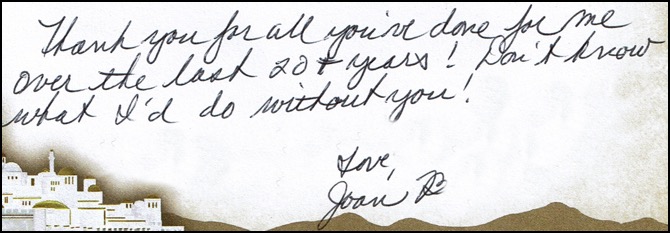 Thank you for all you've done for me
over the last 20+ years! Don't know
what I'd do without you!
Love,
Joan B